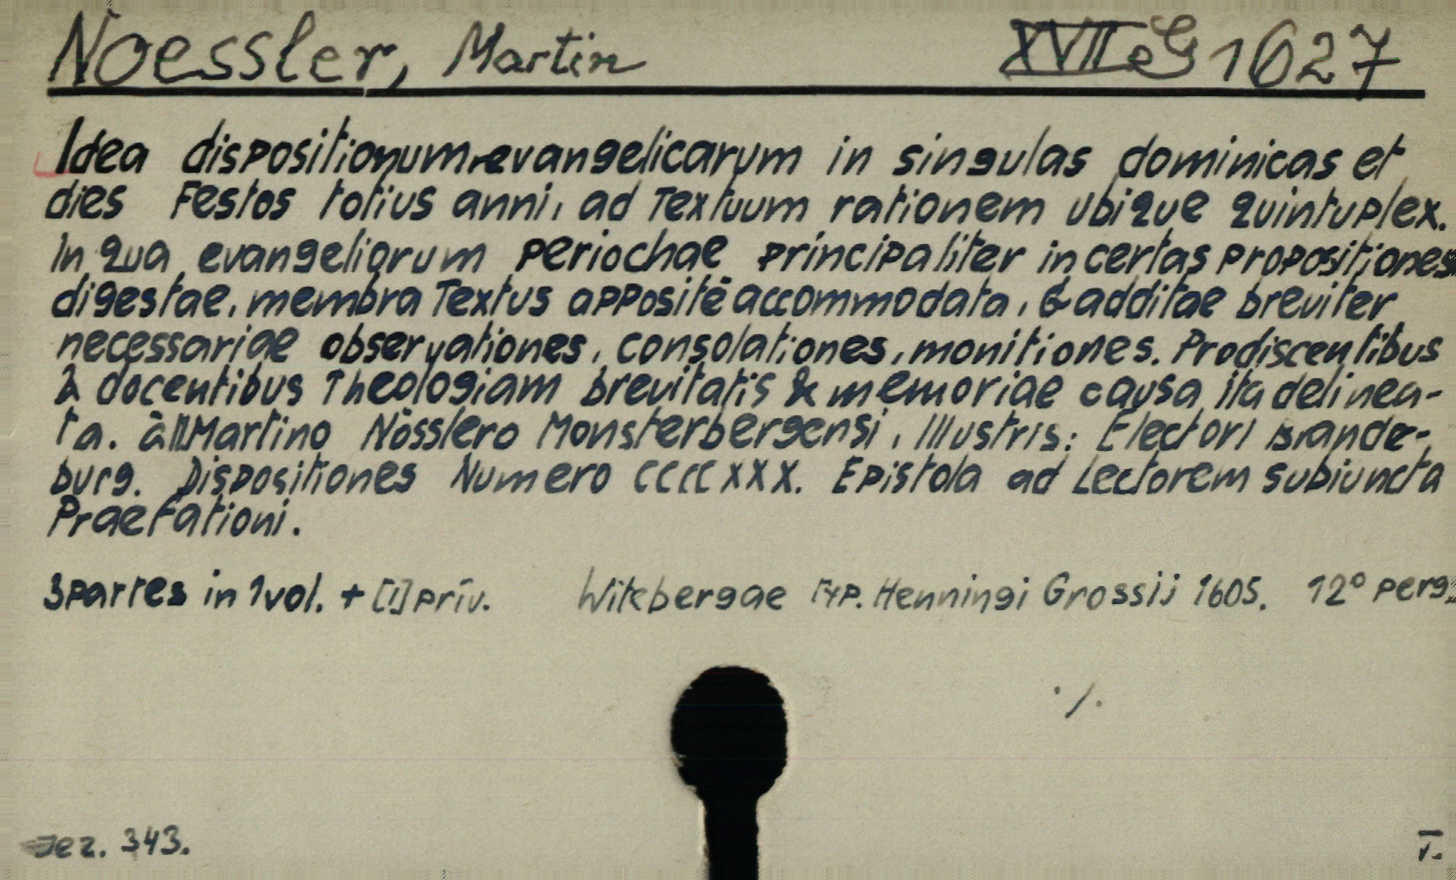 Noessler, Martin XVII e G 1627
Idea dispositionum evangelicarum in singulas dominicas et
dies Festos totius anni, ad Textuum rationem ubique quintuplex.
In qua evangeliorum periochae principaliter in certas propositiones
digestae, membra Textus appositè accommodata, & additae breviter
necessariae observationes, consolationes, monitiones. Prodiscentibus
& docentibus Theologiam brevitatis & memoriae causa ita delinea-
ta. à Martino Nösslero Monsterbergensi, Illustris: Electori Brande-
burg. Dispositiones Numero CCCCXXX. Epistola ad Lectorem subiuncta
Praefationi.
3 partes in 1 vol. + [1] priv. Witebergae Typ. Henningi Grossij 1605. 12° perg.
./.
Jez. 343.